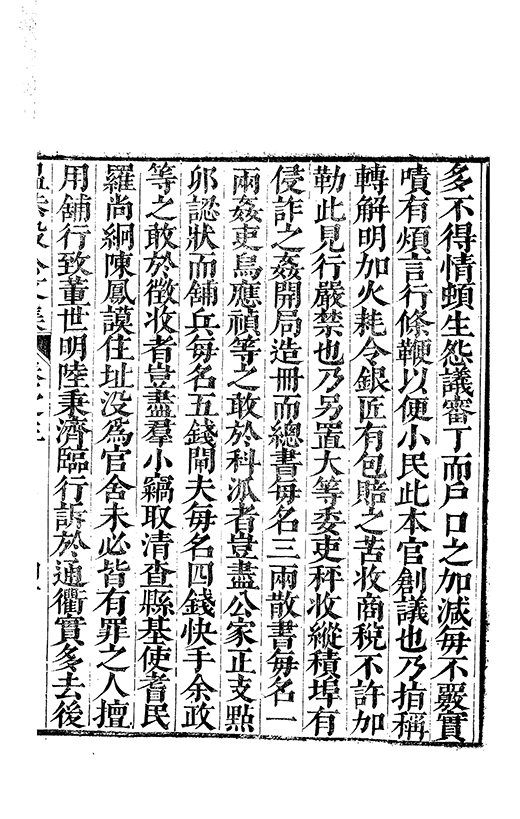 多不得情頓生怨議審丁而戶口之加減每不覈實
嘖有煩言行條鞭以便小民此本官創議也乃指稱
轉解明加火耗令銀匠有包賠之苦收商稅不許加
勒此見行嚴禁也乃另置大等委吏秤收縱積埠有
侵詐之姦開局造冊而總書每名三兩散書每名一
兩姦吏烏應禎等之敢於科派者豈盡公家正支點
卯認狀而舖兵每名五錢閘夫每名四錢快手余政
等之敢於徵收者豈盡羣小竊取清查縣基使耆民
羅尚綱陳鳳謨住址没爲官舍未必皆有罪之人擅
用舖行致董世明陸秉濟臨行訴於通衢實多去後